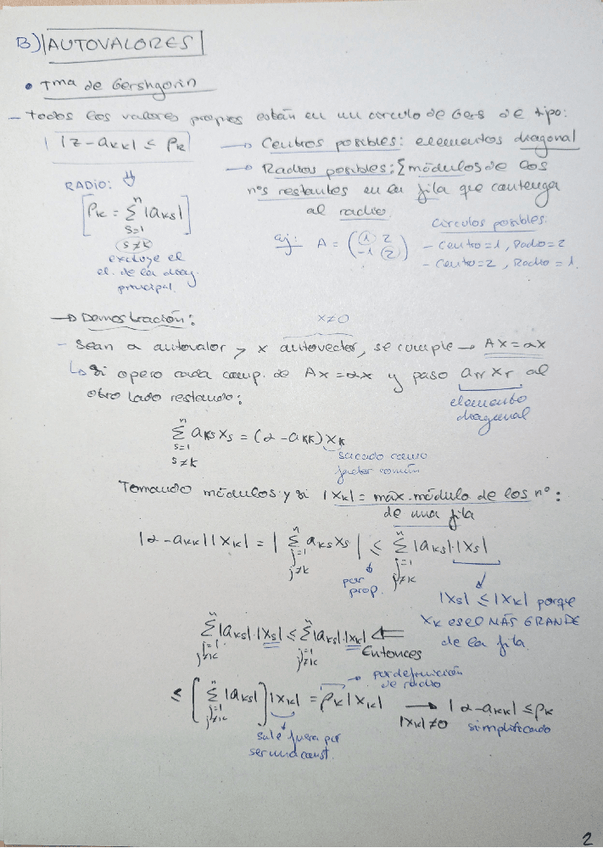 B) AUTOVALORES
• Tma de Gershgorin
- Todos los valores propios están en un círculo de Gers de tipo:
|z - akk| ≤ ρk
→ Centros posibles: elementos diagonal
→ Radios posibles: Σ módulos de los
nos restantes en la fila que contenga
al radio.
RADIO: ⇓
[ρk = Σ(s=1, s≠k)^n |aks|]
excluye el
el. de la diag.
principal.
ej: A = (1 2; -1 2)
círculos posibles:
- Centro=1, Radio=2
- Centro=2, Radio=1.
→ Demostración:
x≠0
- Sean α autovalor y x autovector, se cumple → Ax=αx
↳ Si opero cada comp. de Ax=αx y paso arr xr al
otro lado restando:
elemento
diagonal
Σ(s=1, s≠k)^n aks xs = (α - akk) xk
sacado como
factor común
Tomando módulos y si |xk| = máx. módulo de los nº:
de una fila
|α - akk| |xk| = | Σ(j=1, j≠k)^n aks xs | ≤ Σ(j=1, j≠k)^n |aks|·|xs|
por
prop.
|xs| ≤ |xk| porque
xk es el MÁS GRANDE
de la fila
Σ(j=1, j≠k)^n |aks|·|xs| ≤ Σ(j=1, j≠k)^n |aks|·|xk| ⇐
Entonces
→ por definición
de radio
≤ [Σ(j=1, j≠k)^n |aks|] |xk| = ρk |xk| → |α - akk| ≤ ρk
|xk|≠0 simplificado
sale fuera por
ser una const.
2